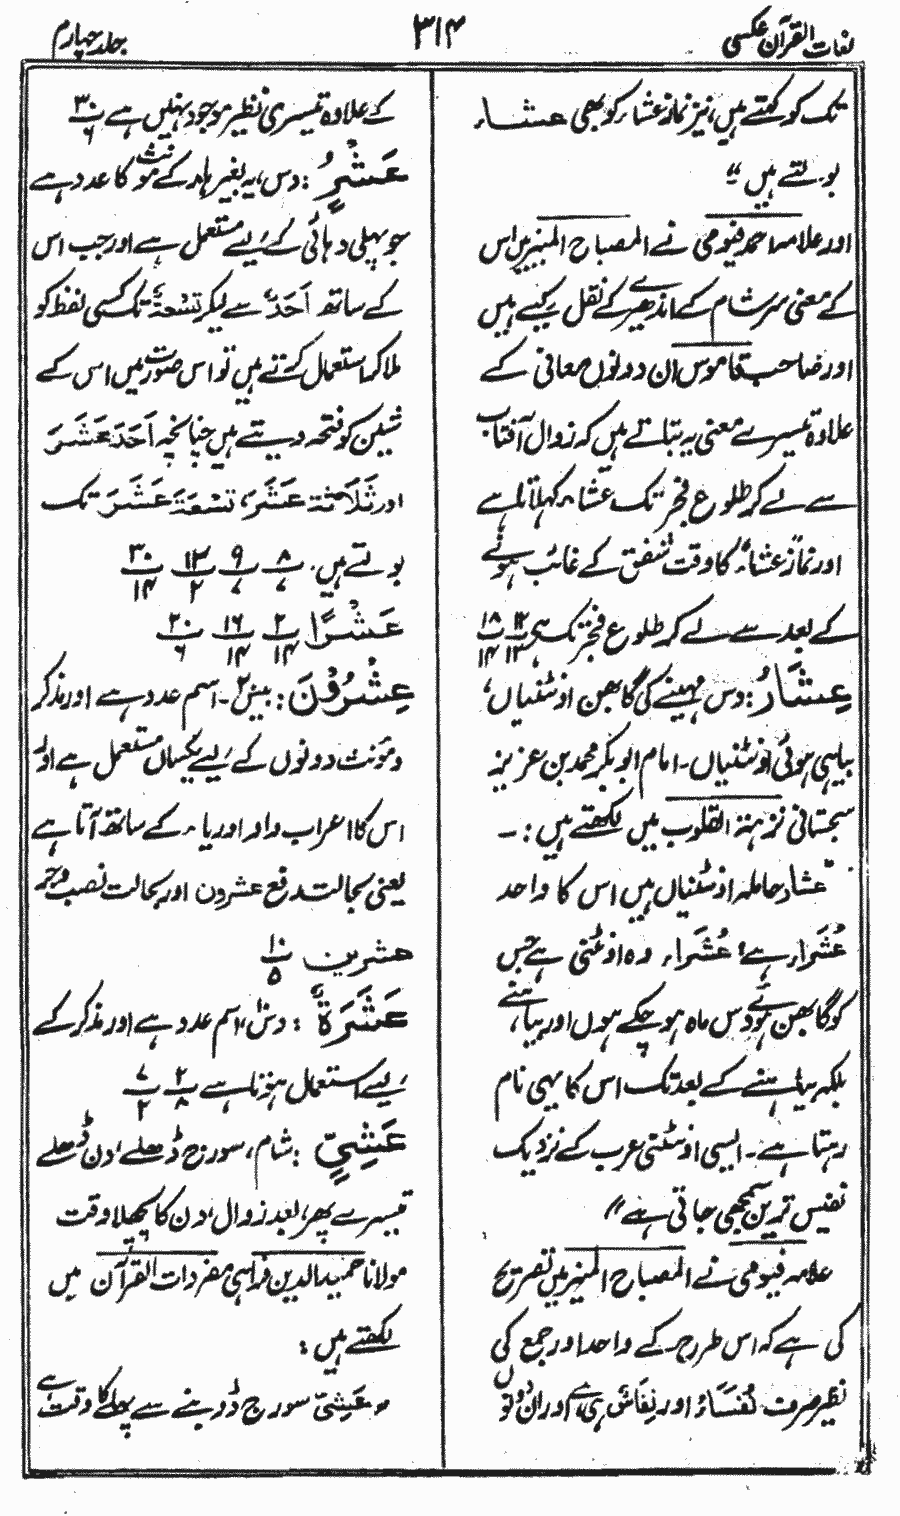 لغات القرآن عکسی
۳۱۴
جلد چہارم
تک کو کہتے ہیں، نیز نماز عشاء کو بھی عشاء
بولتے ہیں"
اور علامہ احمد فیومی نے المصباح المنیر میں اس
کے معنی سرِ شام کے اندھیرے کے نقل کیے ہیں
اور صاحب قاموس ان دونوں معانی کے
علاوہ تیسرے معنی یہ بتاتے ہیں کہ زوال آفتاب
سے لے کر طلوع فجر تک عشاء کہلاتا ہے
اور نماز عشاء کا وقت شفق کے غائب ہونے
کے بعد سے لے کر طلوع فجر تک ہے ۱۲/۱۳ ۱۸/۱۴
عِشَارُ: دس مہینے کی گابھن اونٹنیاں،
بیاہی ہوئی اونٹنیاں۔ امام ابوبکر محمد بن عزیز
سجستانی نزہۃ القلوب میں لکھتے ہیں :۔
عشار حاملہ اونٹنیاں ہیں اس کا واحد
عُشَراء ہے، عُشَراء وہ اونٹنی ہے جس
کو گابھن ہوئے دس ماہ ہو چکے ہوں اور بیاہنے،
بلکہ بیاہنے کے بعد تک اس کا یہی نام
رہتا ہے۔ ایسی اونٹنی عرب کے نزدیک
نفیس ترین سمجھی جاتی ہے"
علامہ فیومی نے المصباح المنیر میں تصریح
کی ہے کہ اس طرح کے واحد اور جمع کی
نظیر صرف نُفَسَاءُ اور نِفَاسٌ ہی ہے اور ان دونوں
کے علاوہ تیسری نظیر موجود نہیں ہے ۳۰/۶
عَشْرٍ: دس، یہ بغیر ہاء کے مؤنث کا عدد ہے
جو پہلی دہائی کے لیے مستعمل ہے اور جب اس
کے ساتھ أَحَدَ سے لیکر تِسْعَةَ تک کسی لفظ کو
ملا کر استعمال کرتے ہیں تو اس صورت میں اس کے
شین کو فتحہ دیتے ہیں چنانچہ أَحَدَ عَشَرَ
اور ثَلَاثَةَ عَشَرَ، تِسْعَةَ عَشَرَ تک
بولتے ہیں۔ ۸/۷ ۹/۷ ۱۲/۲ ۳۰/۱۴
عَشْرًا ۲/۱۴ ۱۶/۱۴ ۲۰/۶
عِشْرُوْنَ: بیس ۲۔ اسم عدد ہے اور مذکر
و مؤنث دونوں کے لیے یکساں مستعمل ہے اور
اس کا اعراب واو اور یاء کے ساتھ آتا ہے
یعنی بحالت رفع عشرون اور بحالت نصب و جر
عشرین ۱۰/۵
عَشَرَةٌ: دس، اسم عدد ہے اور مذکر کے
لیے استعمال ہوتا ہے ۲/۸ ۷/۲
عَشِيٍّ: شام، سورج ڈھلے، دن ڈھلے
تیسرے پہر، بعد زوال، دن کا پچھلا وقت
مولانا حمید الدین فراہی مفردات القرآن میں
لکھتے ہیں :
" عَشِيّ سورج ڈوبنے سے پہلے کا وقت ہے